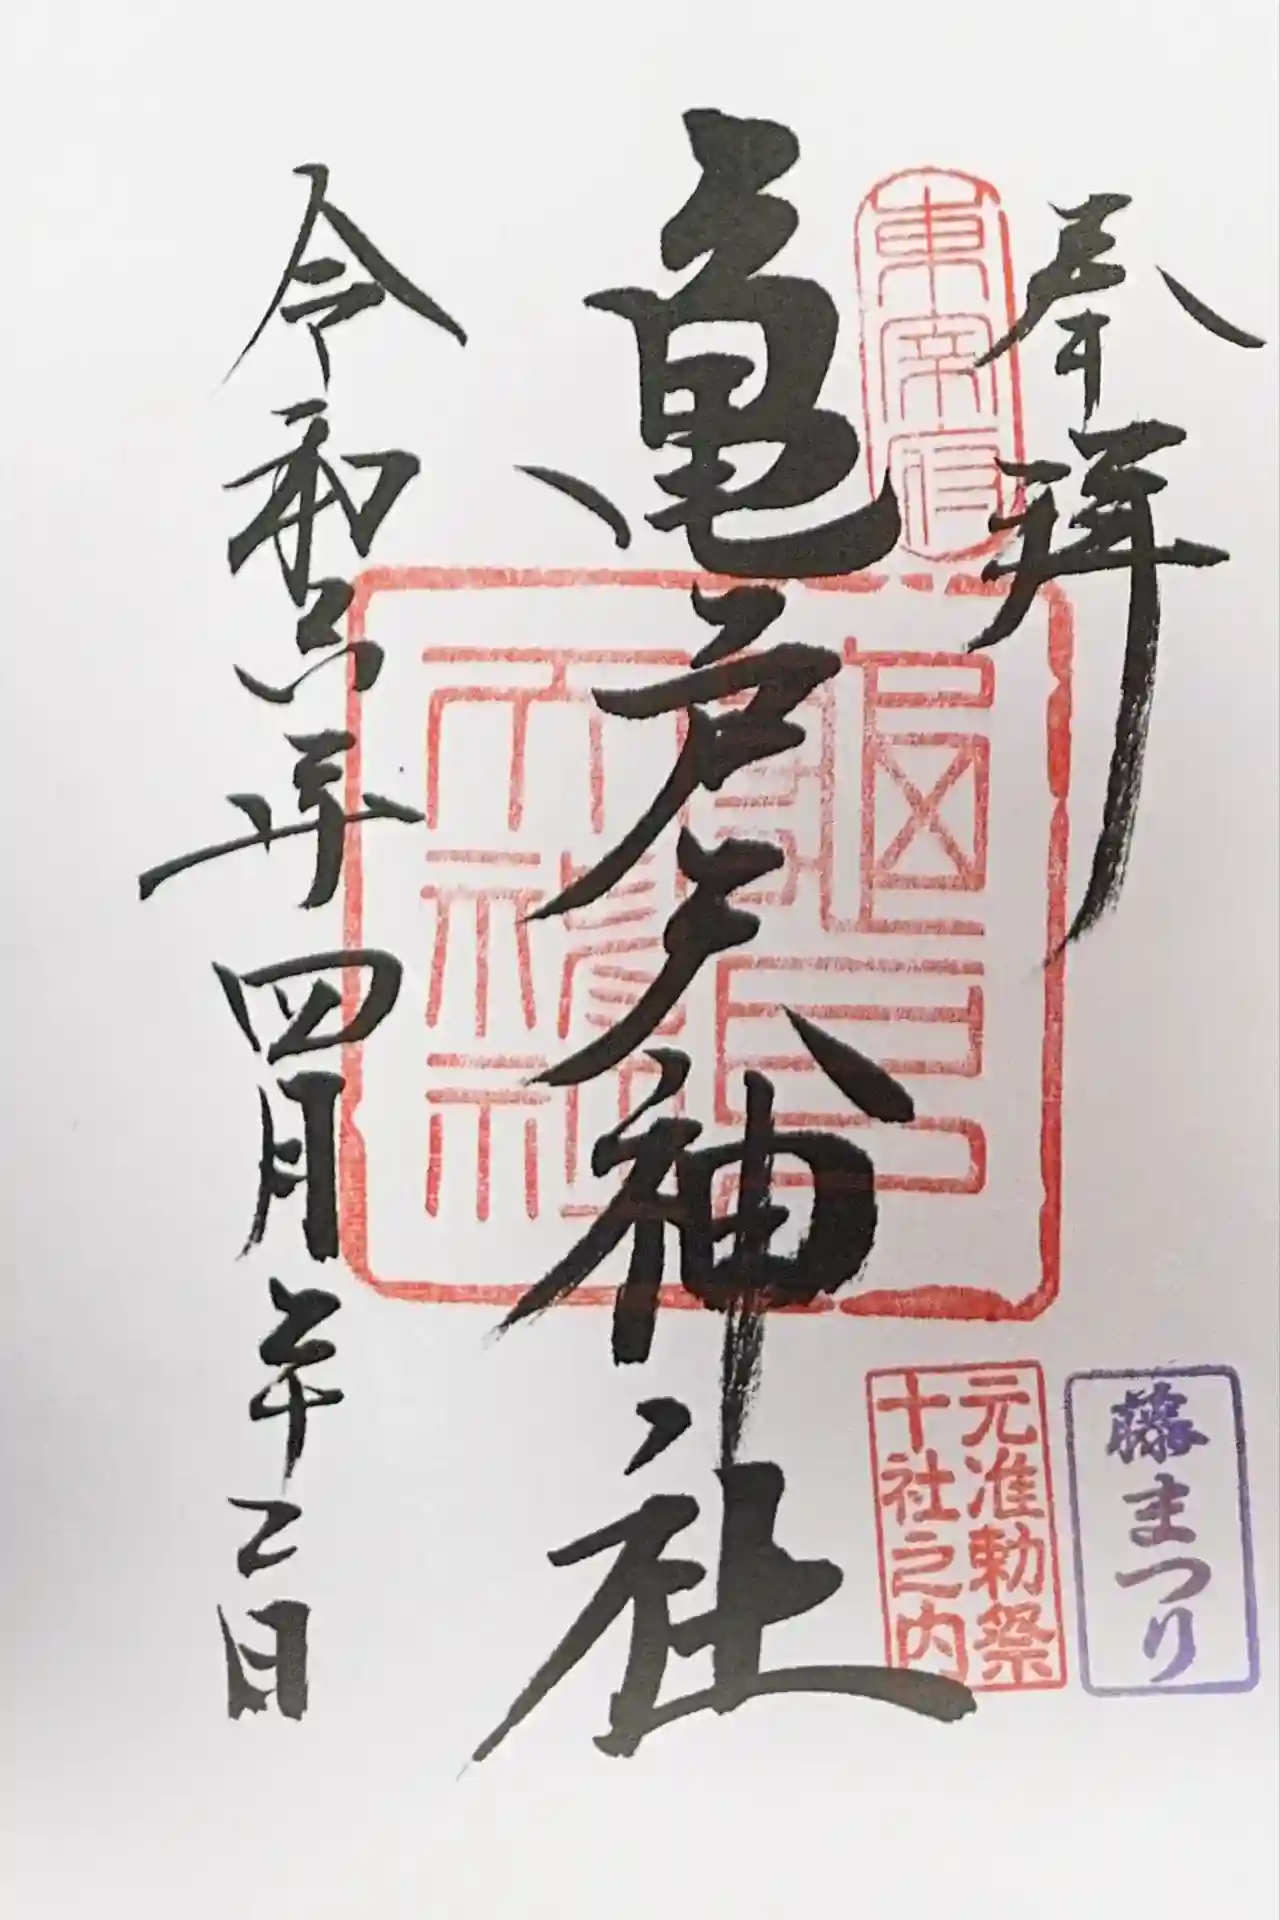 奉拝
東宰府
亀戸天神社
令和六年四月二十二日
藤まつり
元准勅祭
十社之内